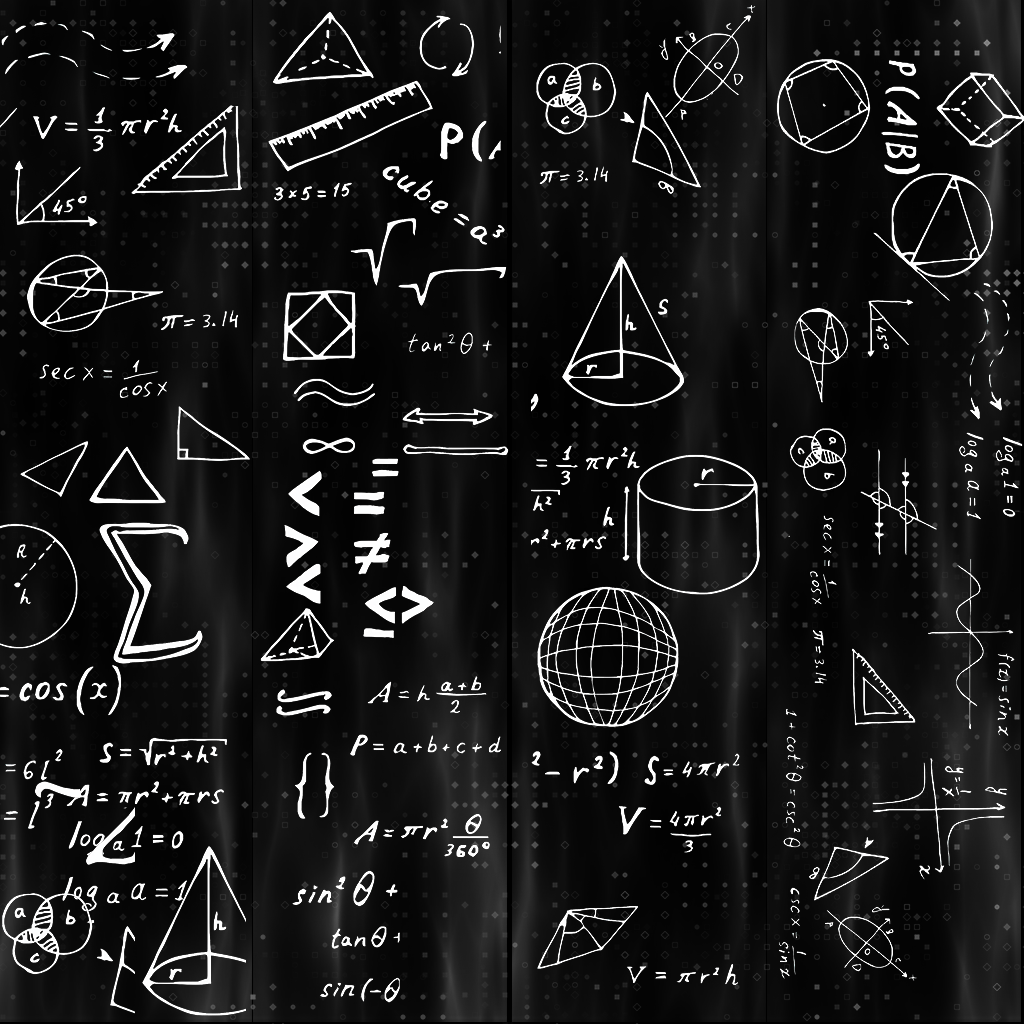 V = 1/3 πr²h
45°
π = 3.14
sec x = 1/cosx
R
h
= cos (x)
= 6l²
S = √r²+h²
= l³
A = πr² + πrs
log a 1 = 0
log a a = 1
a
b
c
h
r
P(A
3×5=15
cube = a³
tan²θ +
∞
< =
> ≡
< ≠
<>
A = h a+b/2
P = a+b+c+d
{ }
A = πr² θ/360°
sin²θ +
tanθ +
sin(-θ
a
b
c
y
B
C
O
D
P
π = 3.14
B
h
S
r
= 1/3 πr²h
h²
r²+πrs
h
r
² - r²)
S = 4πr²
V = 4πr²/3
V = πr²h
P(A|B)
45°
a
b
c
log a a = 1
log a 1 = 0
sec x = 1/cosx
π = 3.14
f(x) = sin x
1 + cot²θ = csc²θ
y = 1/x
y
x
B
csc x = 1/sinx
y
B
P
D
C